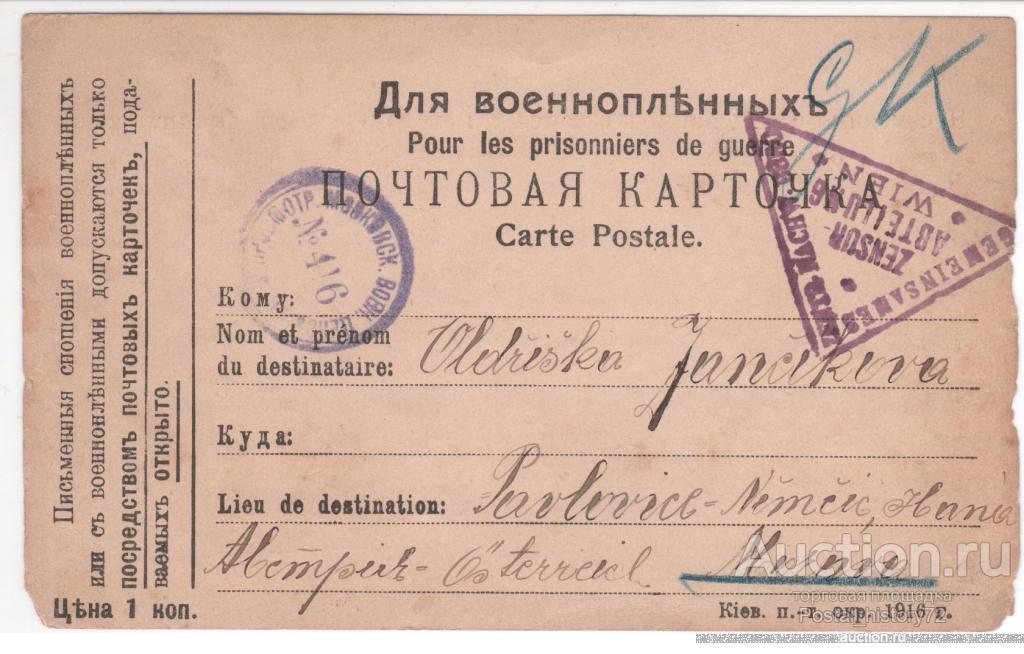 Письменныя сношенія военноплѣнныхъ
или съ военноплѣнными допускаются только
посредствомъ почтовыхъ карточекъ, пода-
ваемыхъ открыто.
Цѣна 1 коп.
GK
Для военноплѣнныхъ
Pour les prisonniers de guerre
ПОЧТОВАЯ КАРТОЧКА
Carte Postale.
МОТР. МОСКОВСК. ВОЕН.
№ 416
GEMEINSAMES
ZENSUR-
ABTEILUNG
WIEN
Кому:
Nom et prénom
du destinataire: Oldřiška Jančíkova
Куда:
Lieu de destination: Pavlovice-Němčic, Hana
Австрія-Österreich Morava
Кіев. п.-т. окр. 1916 г.
Auction.ru
торговая площадка
Postal_history72
auction.ru